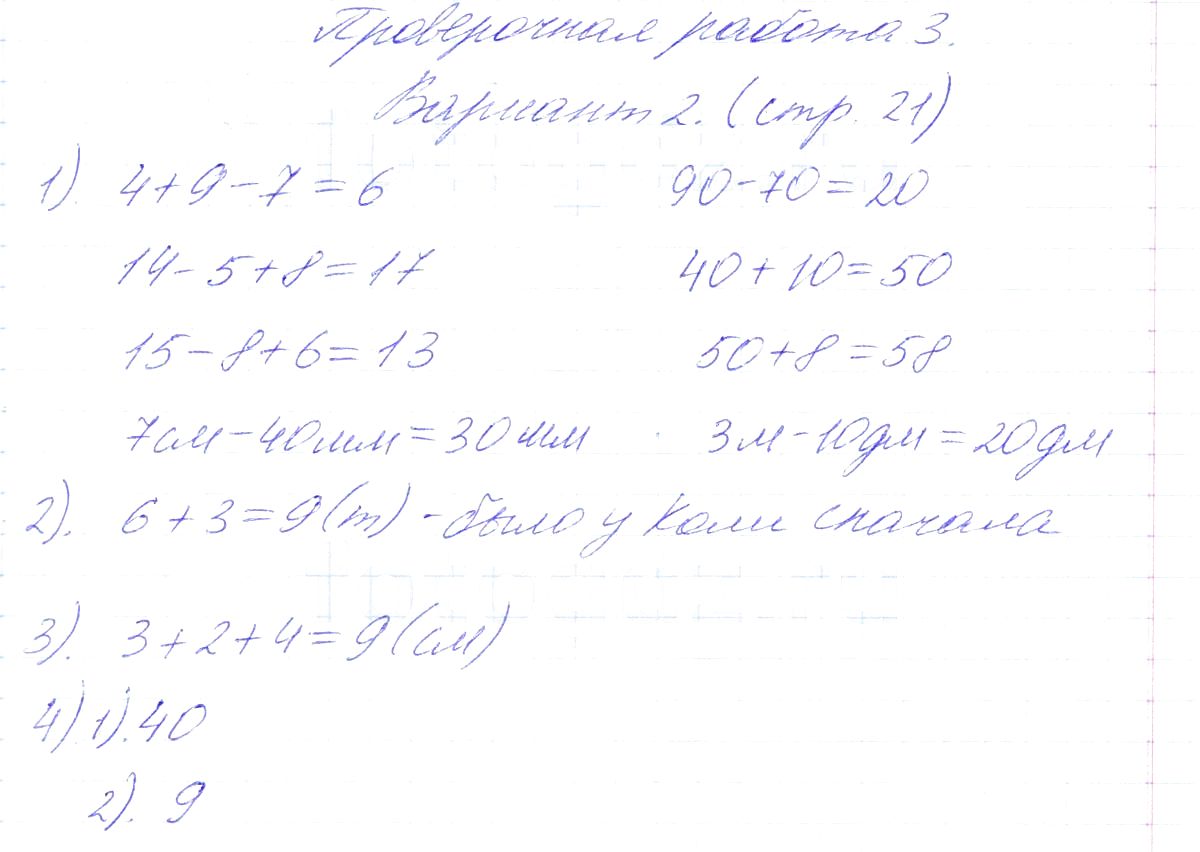 Проверочная работа 3.
Вариант 2. (стр. 21)
1). 4+9-7=6 90-70=20
14-5+8=17 40+10=50
15-8+6=13 50+8=58
7см-40мм=30мм 3м-10дм=20дм
2). 6+3=9(т) -было у Коли сначала
3). 3+2+4=9(см)
4) 1). 40
2). 9